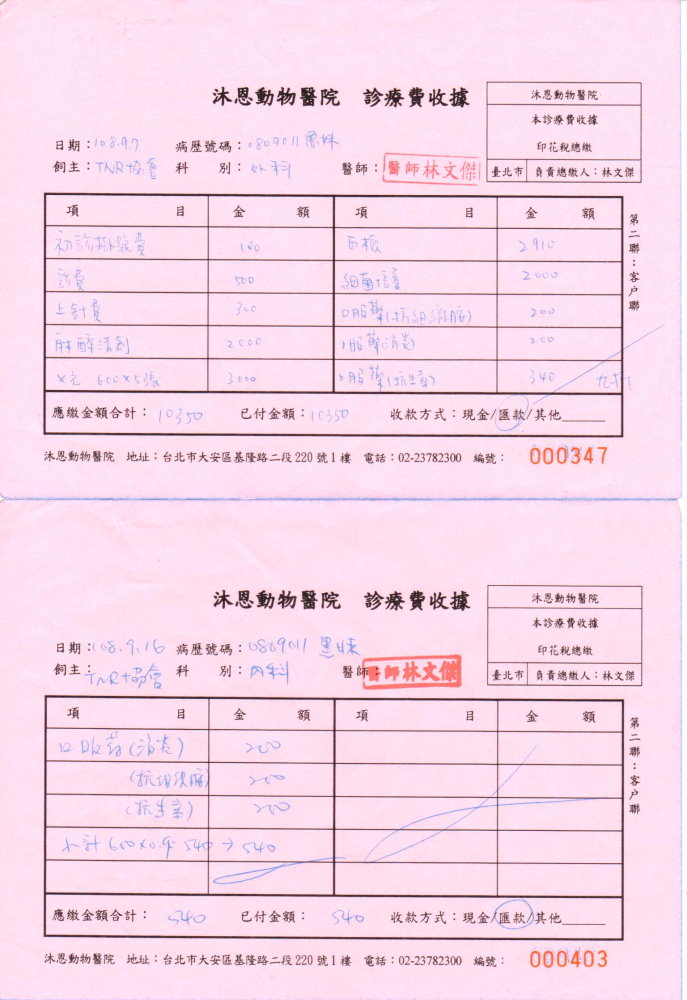 沐恩動物醫院 診療費收據
沐恩動物醫院
本診療費收據
印花稅總繳
臺北市 負責總繳人:林文傑
日期:108.9.7 病歷號碼:0809011 黑妹
飼主:TNR協會 科 別:外科 醫師:醫師林文傑
項 目 金 額 項 目 金 額
初診掛號費 100 2910
診費 500 細菌培養 2000
上針費 300 口服藥(抗組織胺) 200
麻醉 2000 口服藥(消炎) 200
X光 600x5張 3000 口服藥(抗生素) 340 九折
應繳金額合計:10350 已付金額:10350 收款方式:現金/匯款/其他______
第二聯:客戶聯
沐恩動物醫院 地址:台北市大安區基隆路二段220號1樓 電話:02-23782300 編號: 000347
沐恩動物醫院 診療費收據
沐恩動物醫院
本診療費收據
印花稅總繳
臺北市 負責總繳人:林文傑
日期:108.9.16 病歷號碼:0809011 黑妹
飼主:TNR協會 科 別:內科 醫師:醫師林文傑
項 目 金 額 項 目 金 額
口服药(消炎) 200
(抗组织胺) 200
(抗生素) 200
小計 600x0.9 540→540
應繳金額合計:540 已付金額:540 收款方式:現金/匯款/其他______
第二聯:客戶聯
沐恩動物醫院 地址:台北市大安區基隆路二段220號1樓 電話:02-23782300 編號: 000403